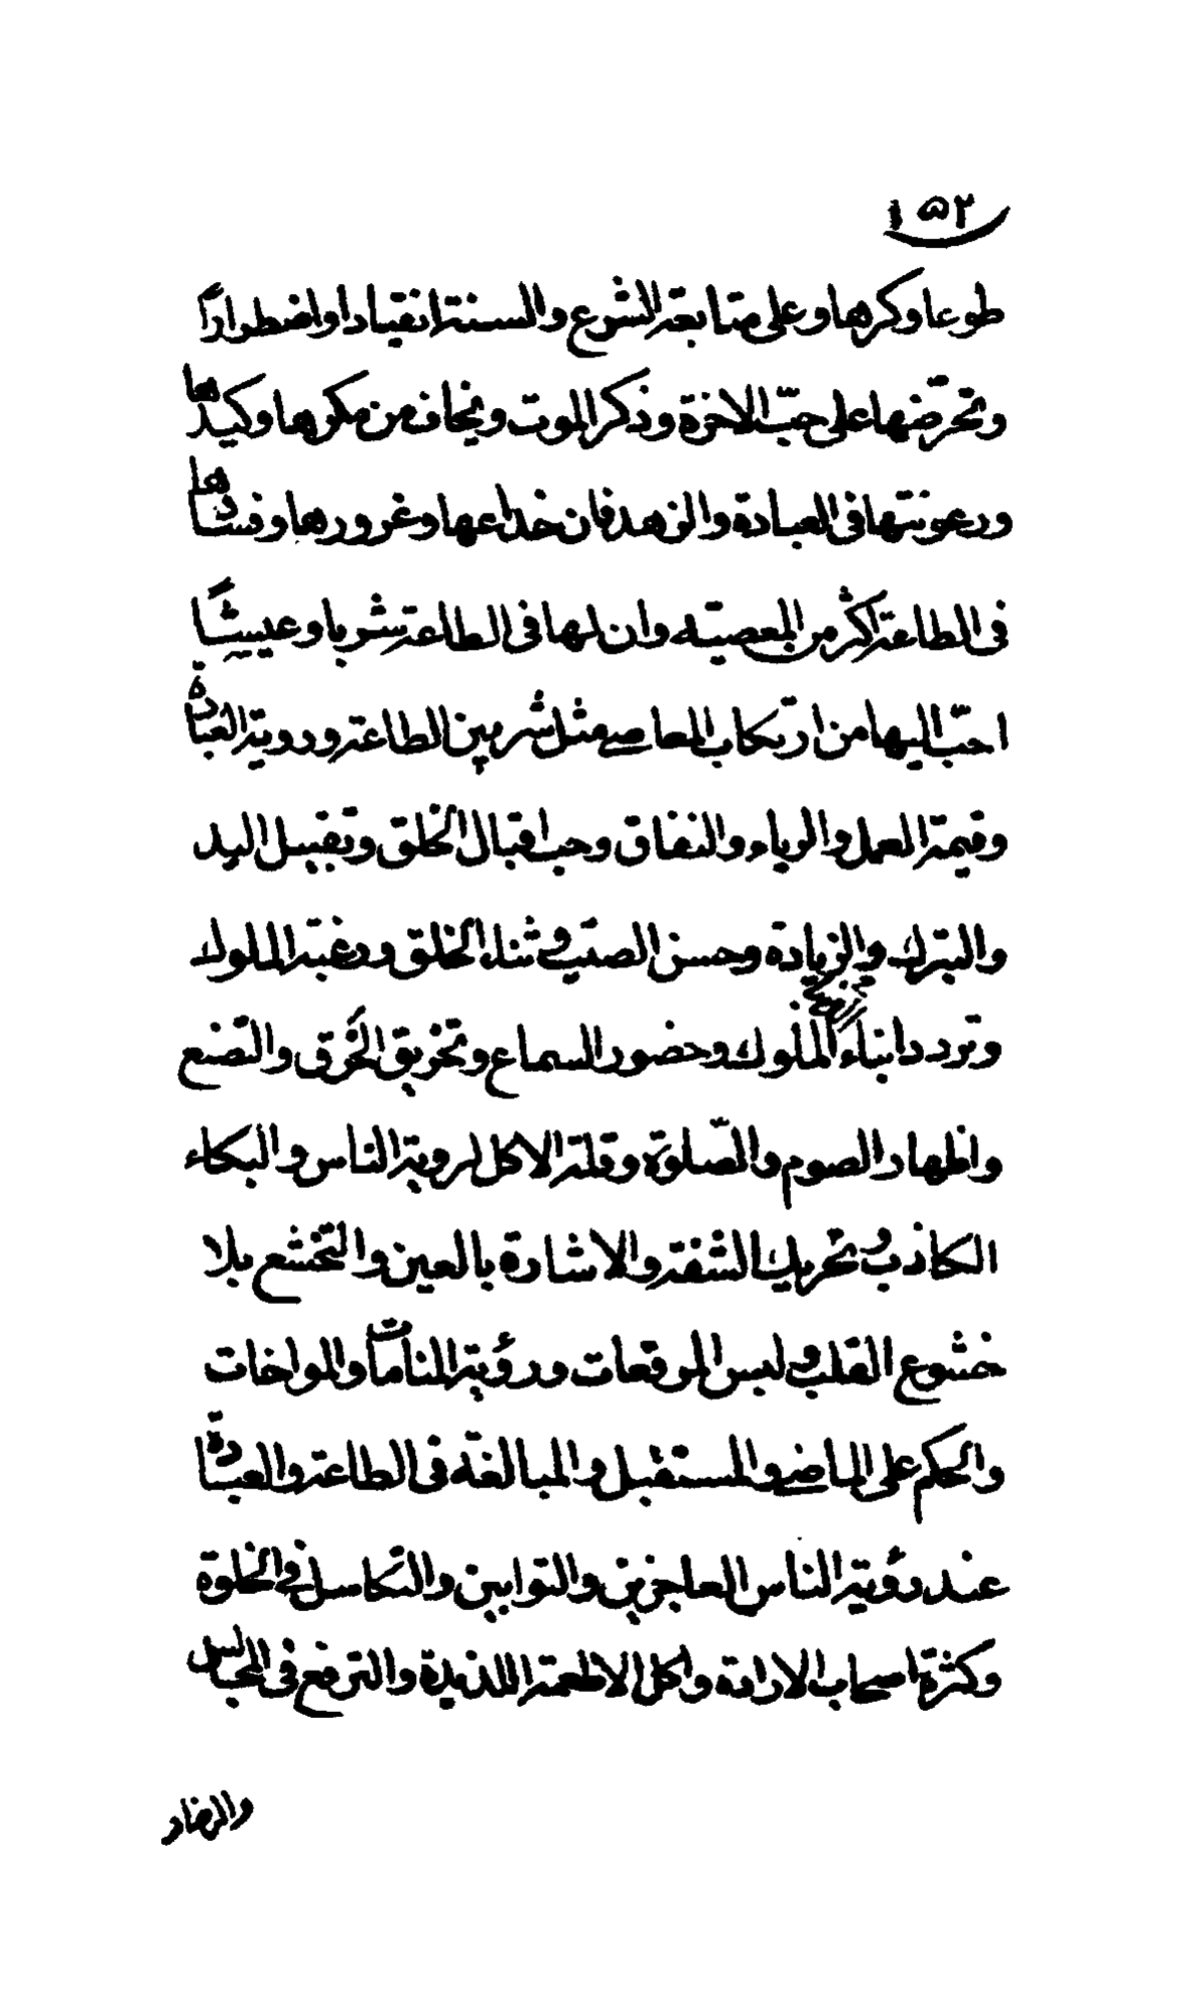 ١٥٢
طوعا وكرها وعلى متابعة الشرع والسنة انقيادا واضطرارًا
وتحرّضها على حبّ الاخرة وذكر الموت ويخاف من مكرها وكيدها
ورعونتها في العبادة والزهد فان خداعها وغرورها وفسادها
في الطاعة اكثر من المعصية وان لها في الطاعة شربا وعيشًا
احبّ اليها من ارتكاب المعاصي مثل شربين الطاعة ورويه العبادة
وقيمة العمل والرياء والنفاق وحب اقبال الخلق وتقبيل اليد
والتبرك والزيادة وحسن الصيت وثناء الخلق ورغبة الملوك
وتردد ابناء الملوك وحضور السماع وتخريق الخرق والتصنع
واظهار الصوم والصّلوة وقلة الاكل لروية الناس والبكاء
الكاذب وتحريك الشفة والاشارة بالعين والتخشع بلا
خشوع القلب ولبس المرقعات ورؤية المنامات والمواخات
والحكم على الماضي والمستقبل والمبالغة في الطاعة والعبادة
عند رؤية الناس العاجزين والتوابين والتكاسل في الخلوة
وكثرة اصحاب الارادة واكل الاطعمة اللذيذة والترفع في المجالس